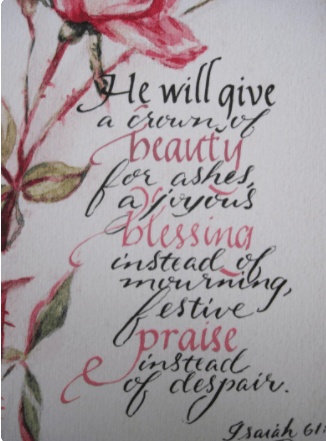 He will give
a crown of
beauty
for ashes,
a joyous
blessing
instead of
mourning,
festive
praise
instead
of despair.
Isaiah 61: